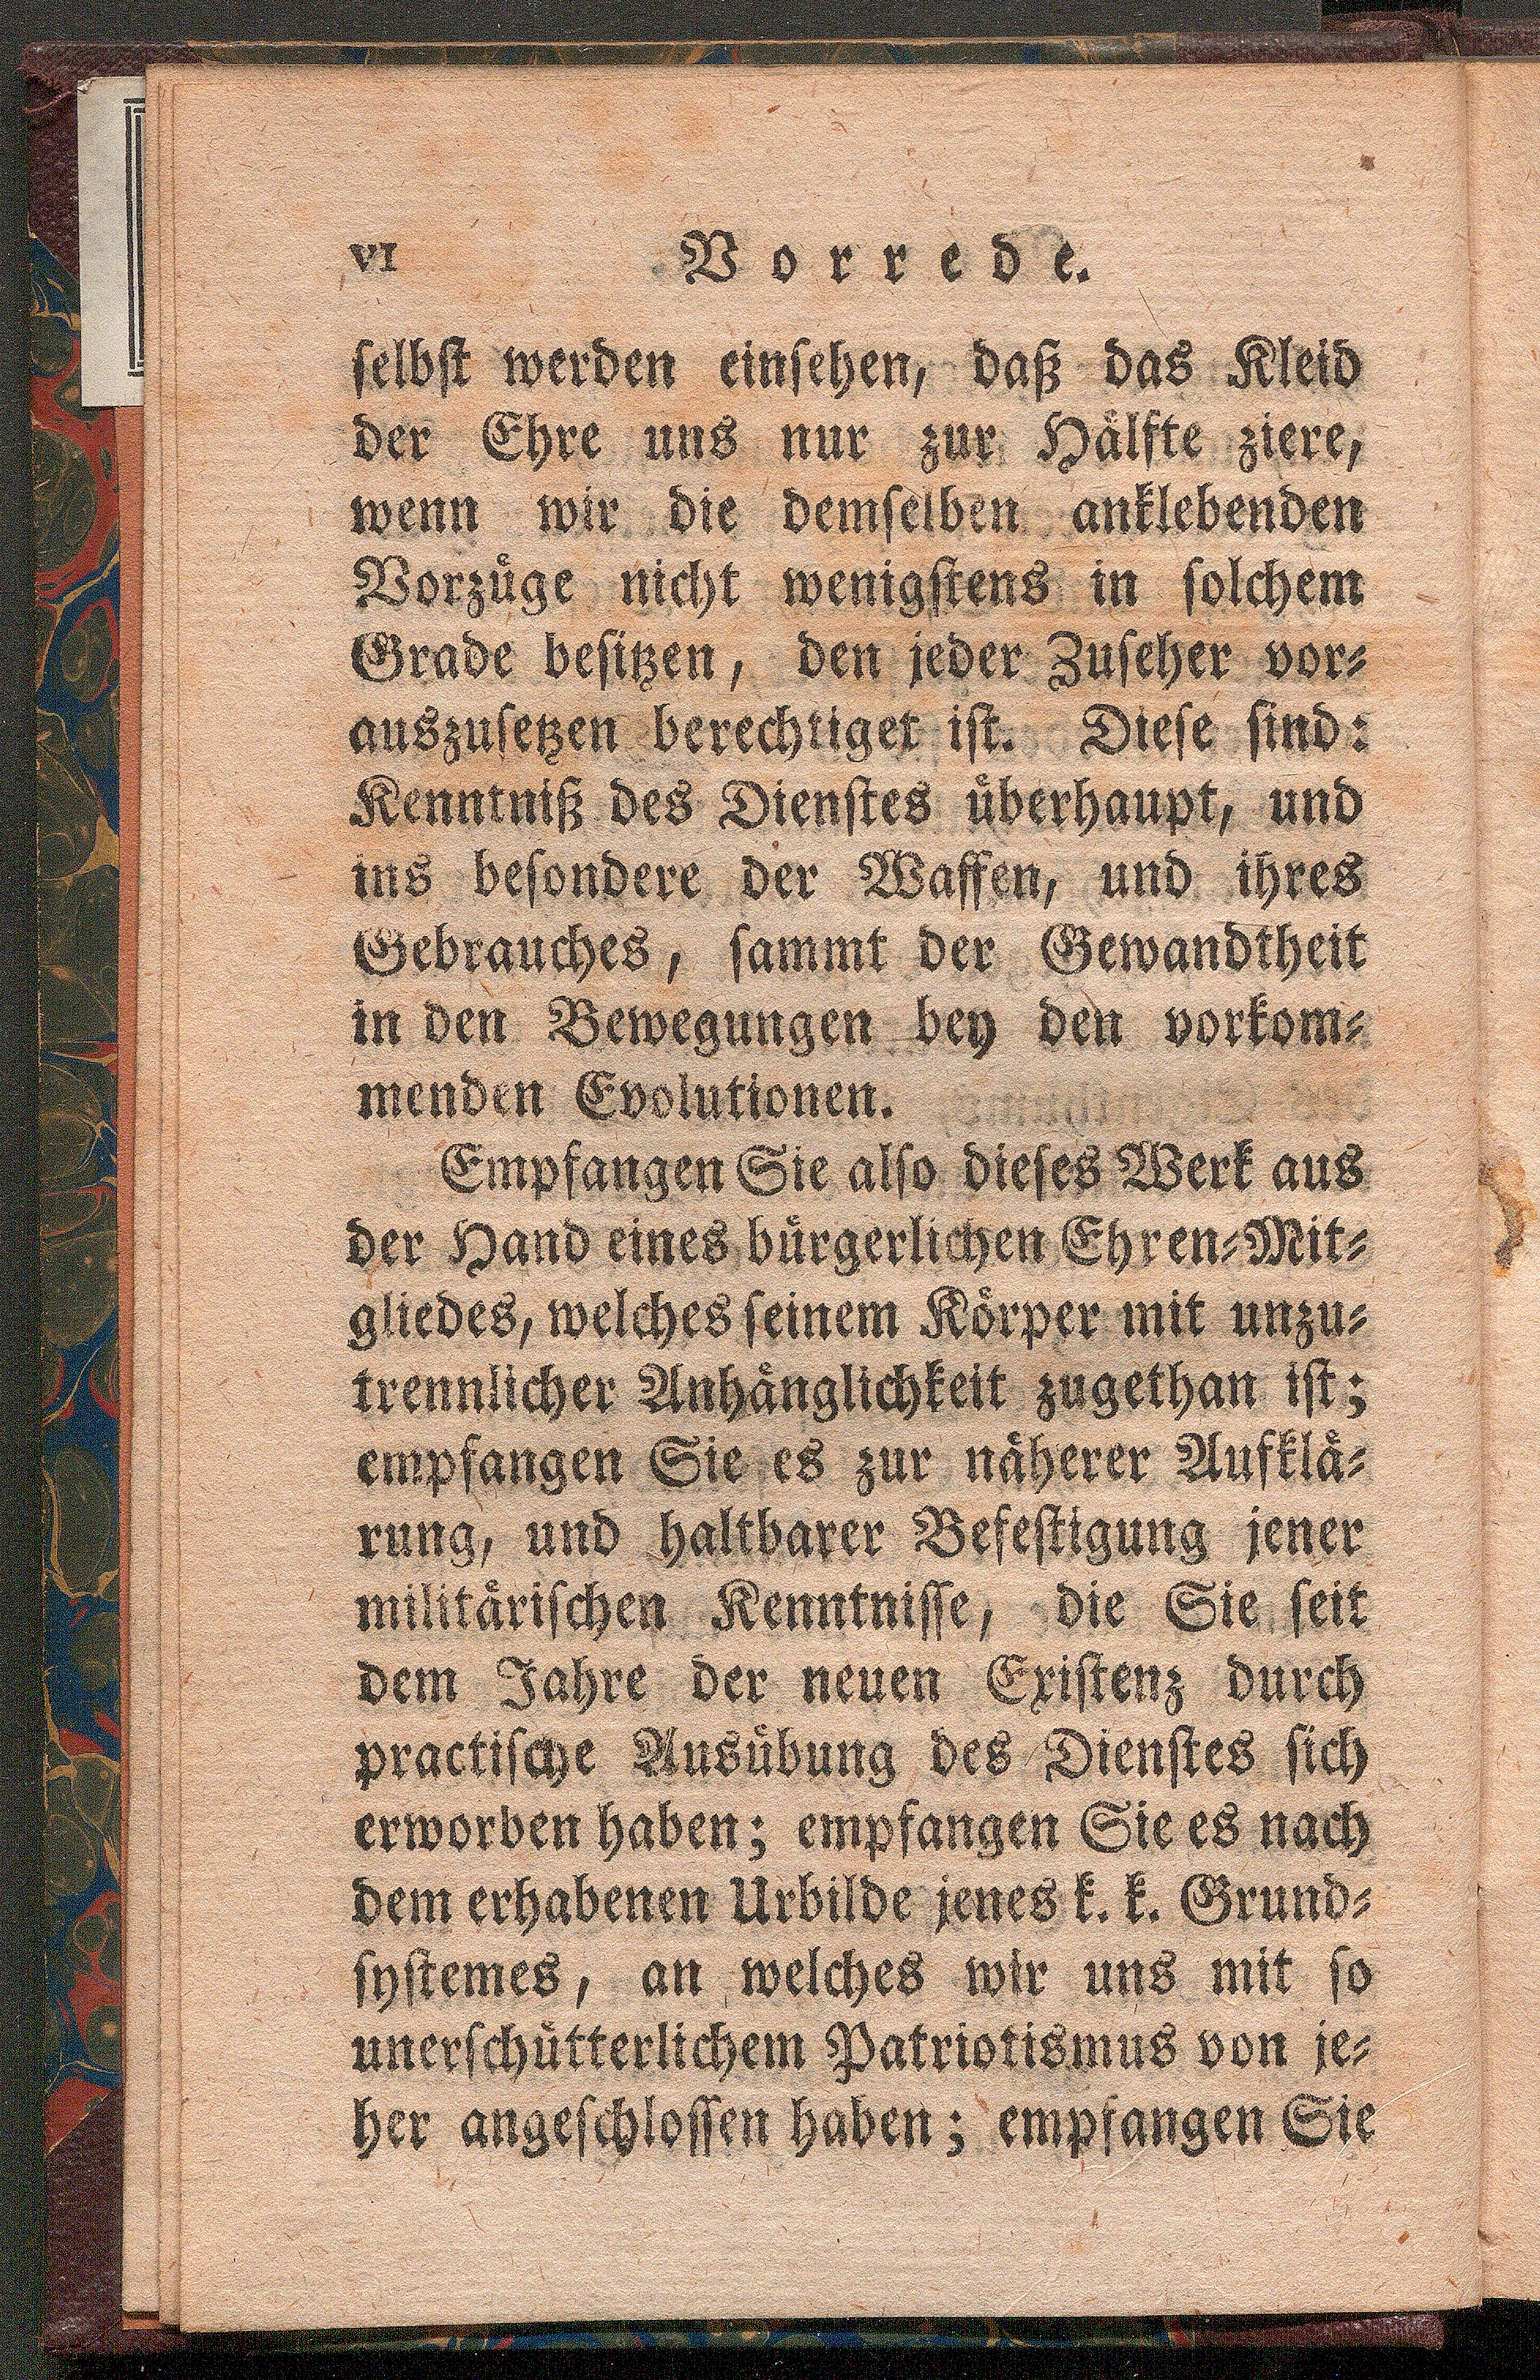 VI Vorrede.
selbst werden einsehen, daß das Kleid
der Ehre uns nur zur Hälfte ziere,
wenn wir die demselben anklebenden
Vorzüge nicht wenigstens in solchem
Grade besitzen, den jeder Zuseher vor-
auszusetzen berechtiget ist. Diese sind:
Kenntniß des Dienstes überhaupt, und
ins besondere der Waffen, und ihres
Gebrauches, sammt der Gewandtheit
in den Bewegungen bey den vorkom-
menden Evolutionen.
Empfangen Sie also dieses Werk aus
der Hand eines bürgerlichen Ehren-Mit-
gliedes, welches seinem Körper mit unzu-
trennlicher Anhänglichkeit zugethan ist;
empfangen Sie es zur näherer Aufklä-
rung, und haltbarer Befestigung jener
militärischen Kenntnisse, die Sie seit
dem Jahre der neuen Existenz durch
practische Ausübung des Dienstes sich
erworben haben; empfangen Sie es nach
dem erhabenen Urbilde jenes k. k. Grund-
systemes, an welches wir uns mit so
unerschütterlichem Patriotismus von je-
her angeschlossen haben; empfangen Sie